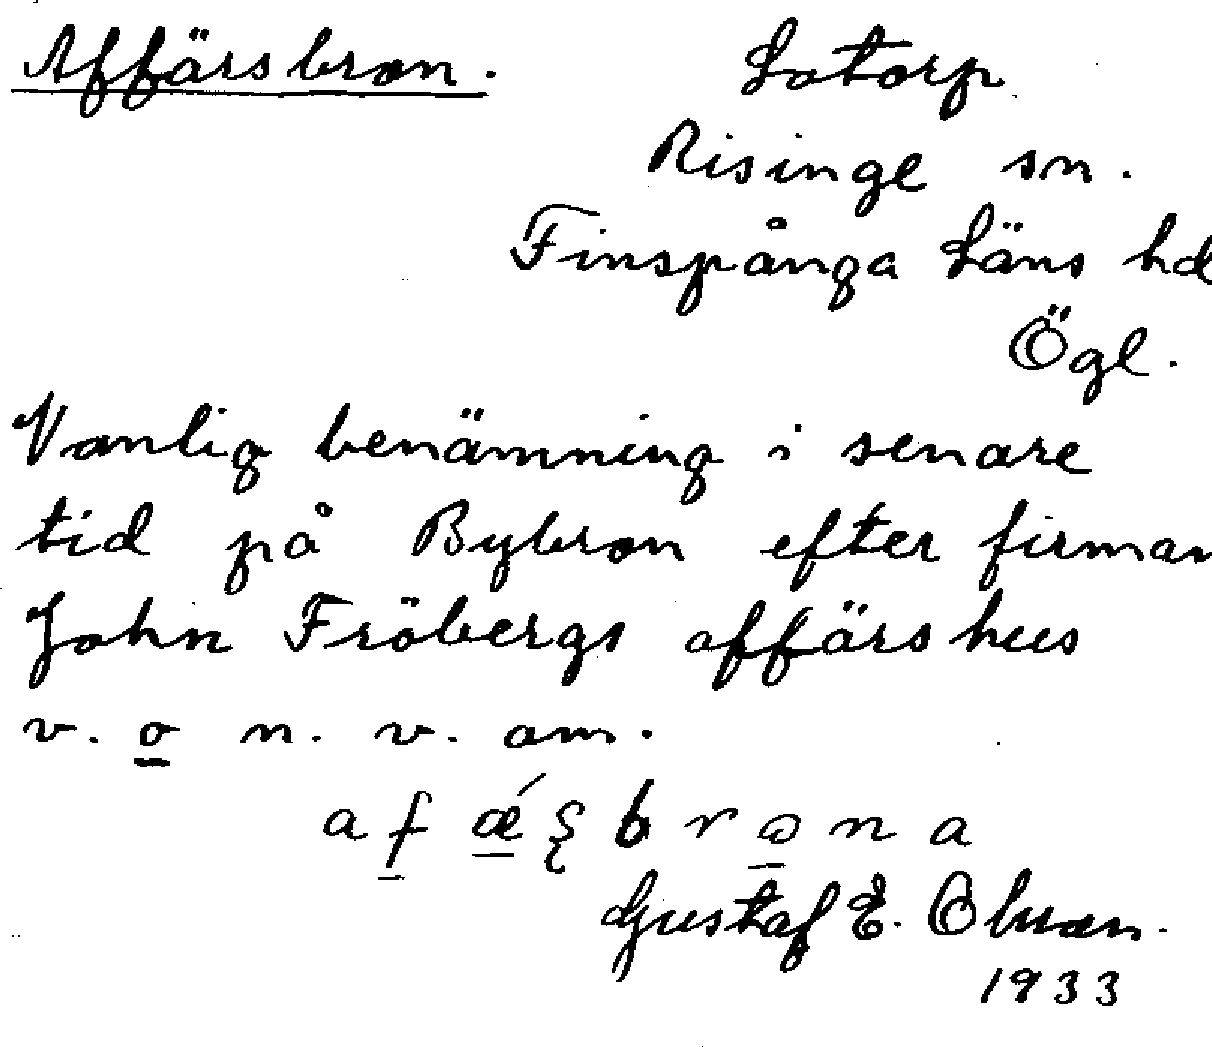 Affärsbron. Lotorp
Risinge sn.
Finspånga Läns hd
Ögl.
Vanlig benämning i senare
tid på Bybron efter firman
John Fröbergs affärshus
v. o n. v. om.
a f ǽ ʂ b r ɷ n a
Gustaf E. Öhman.
1933